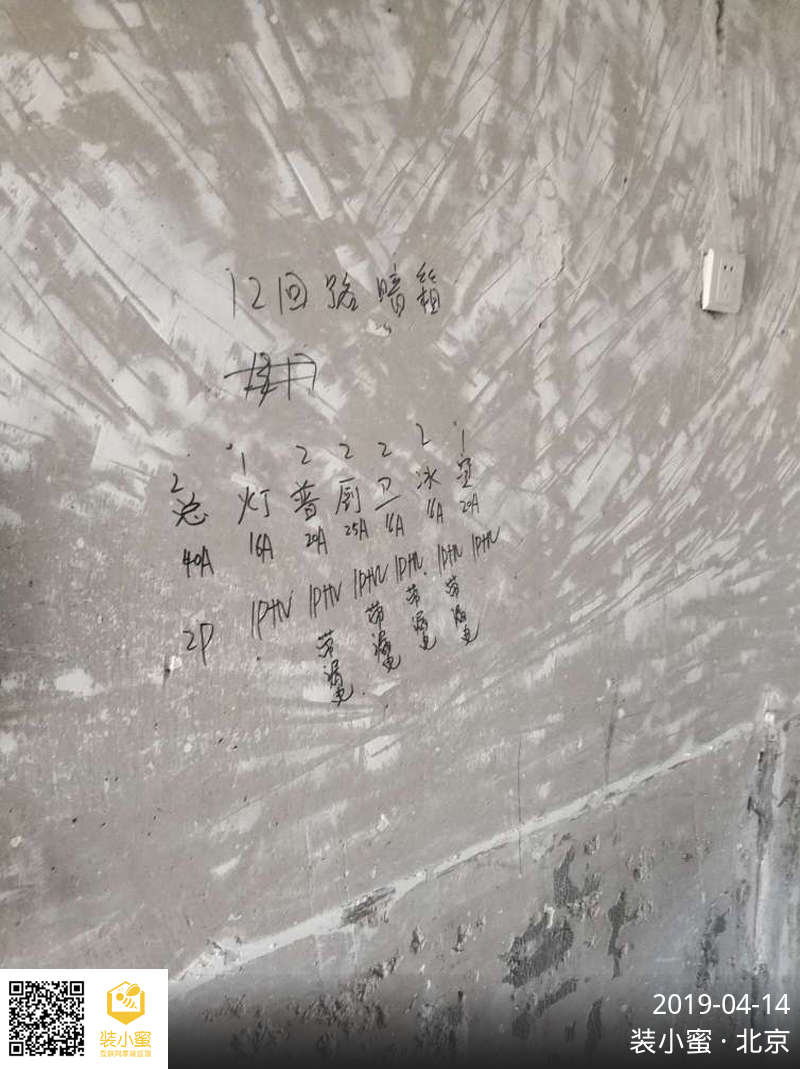 12回路暗箱
2 1 2 2 2 2 1
总 灯 普 厨 卫 冰 空
40A 16A 20A 25A 16A 16A 20A
2P 1P+N 1P+N 1P+N 1P+N 1P+N 1P+N
带漏电 带漏电 带漏电 带漏电
装小蜜
2019-04-14
装小蜜·北京